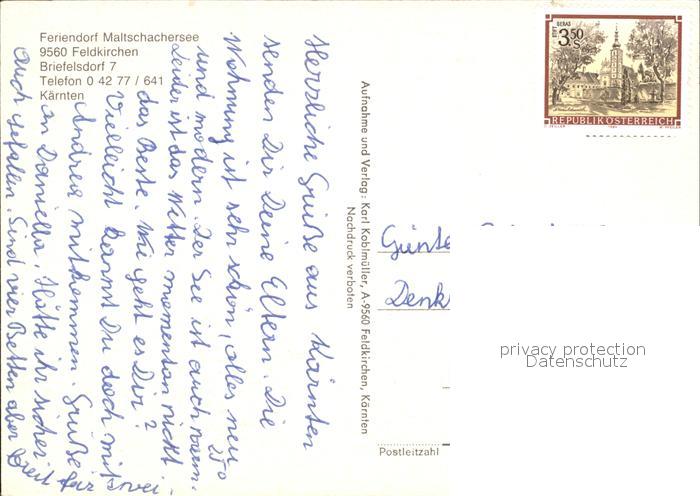 Feriendorf Maltschachersee
9560 Feldkirchen
Briefelsdorf 7
Telefon 0 42 77 / 641
Kärnten
Herzliche Grüße aus Kärnten
senden Dir Deine Eltern. Die
Wohnung ist sehr schön, alles neu
und modern. Der See ist auch warm.
Leider ist das Wetter momentan nicht
das Beste. Wie geht es Dir?
Vielleicht kannst Du doch mit
Andrea mitkommen. Grüße
an Daniella. Hätte ihr sicher
auch gefallen. Sind vier Betten aber breit für zwei.
Aufnahme und Verlag: Karl Koblmüller, A-9560 Feldkirchen, Kärnten
Nachdruck verboten
STIFT GERAS
3.50
S
REPUBLIK ÖSTERREICH
Günte
Denk
Postleitzahl
privacy protection
Datenschutz